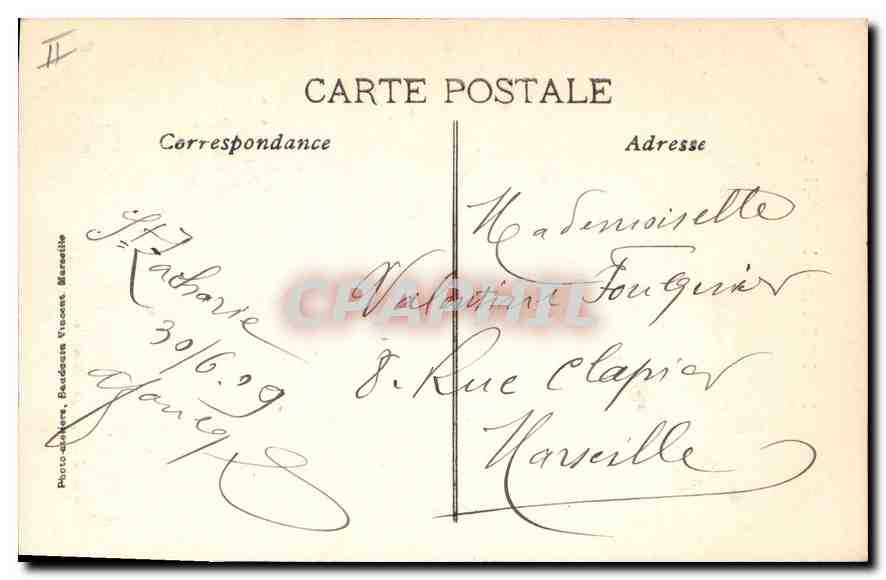 II
CARTE POSTALE
Correspondance
Adresse
St
Zacharie
30/6.09
Mademoiselle
Valentine Fouquier
8. Rue Clapier
Marseille
Photo-ateliers, Baudouin Vincent. Marseille
CPAPHIL